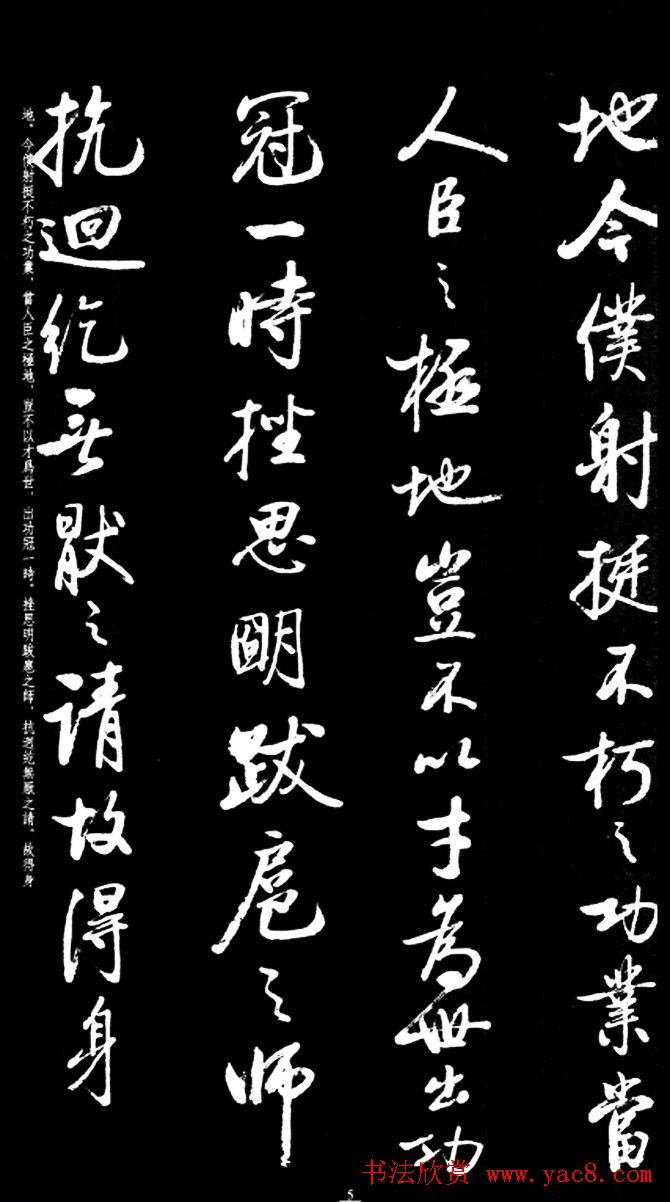 地今僕射挺不朽之功業當
人臣之極地豈不以才為世出功
冠一時挫思明跋扈之師
抗迴紇無猒之請故得身
地、今僕射挺不朽之功業，當人臣之極地，豈不以才爲世，出功冠一時。挫思明跋扈之師，抗迴紇無厭之請。故得身
5
书法欣赏 www.yac8.com